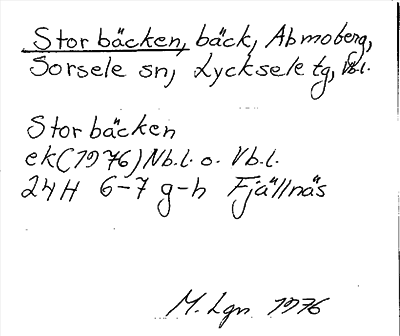 Storbäcken, bäck, Abmoberg,
Sorsele sn, Lycksele tg, Vb.l.
Storbäcken
ek(1976)Nb.l. o. Vb.l.
24H 6-7 g-h Fjällnäs
M. Lgn 1976